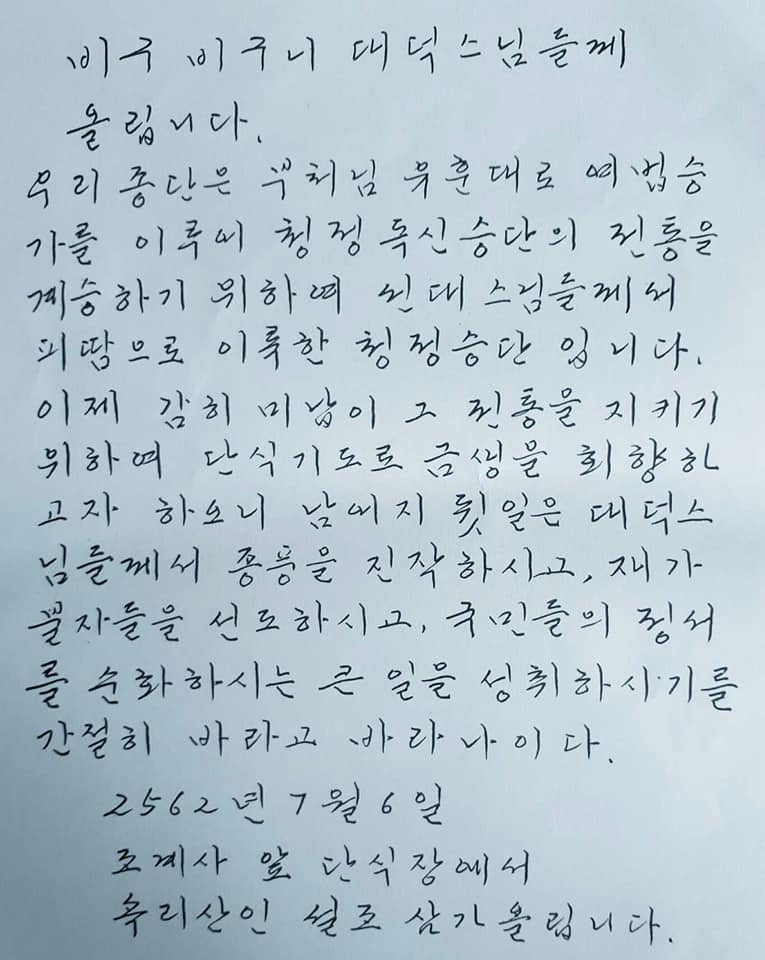 비구 비구니 대덕스님들께
올립니다.
우리 종단은 부처님 유훈대로 여법승
가를 이루어 청정독신승단의 전통을
계승하기 위하여 선대 스님들께서
피땀으로 이룩한 청정승단 입니다.
이제 감히 미납이 그 전통을 지키기
위하여 단식기도로 금생을 회향하
고자 하오니 남어지 뒷일은 대덕스
님들께서 종풍을 진작하시고, 재가
불자들을 선도하시고, 국민들의 정서
를 순화하시는 큰 일을 성취하시기를
간절히 바라고 바라나이다.
2562년 7월 6일
조계사 앞 단식장에서
속리산인 설조 삼가올립니다.